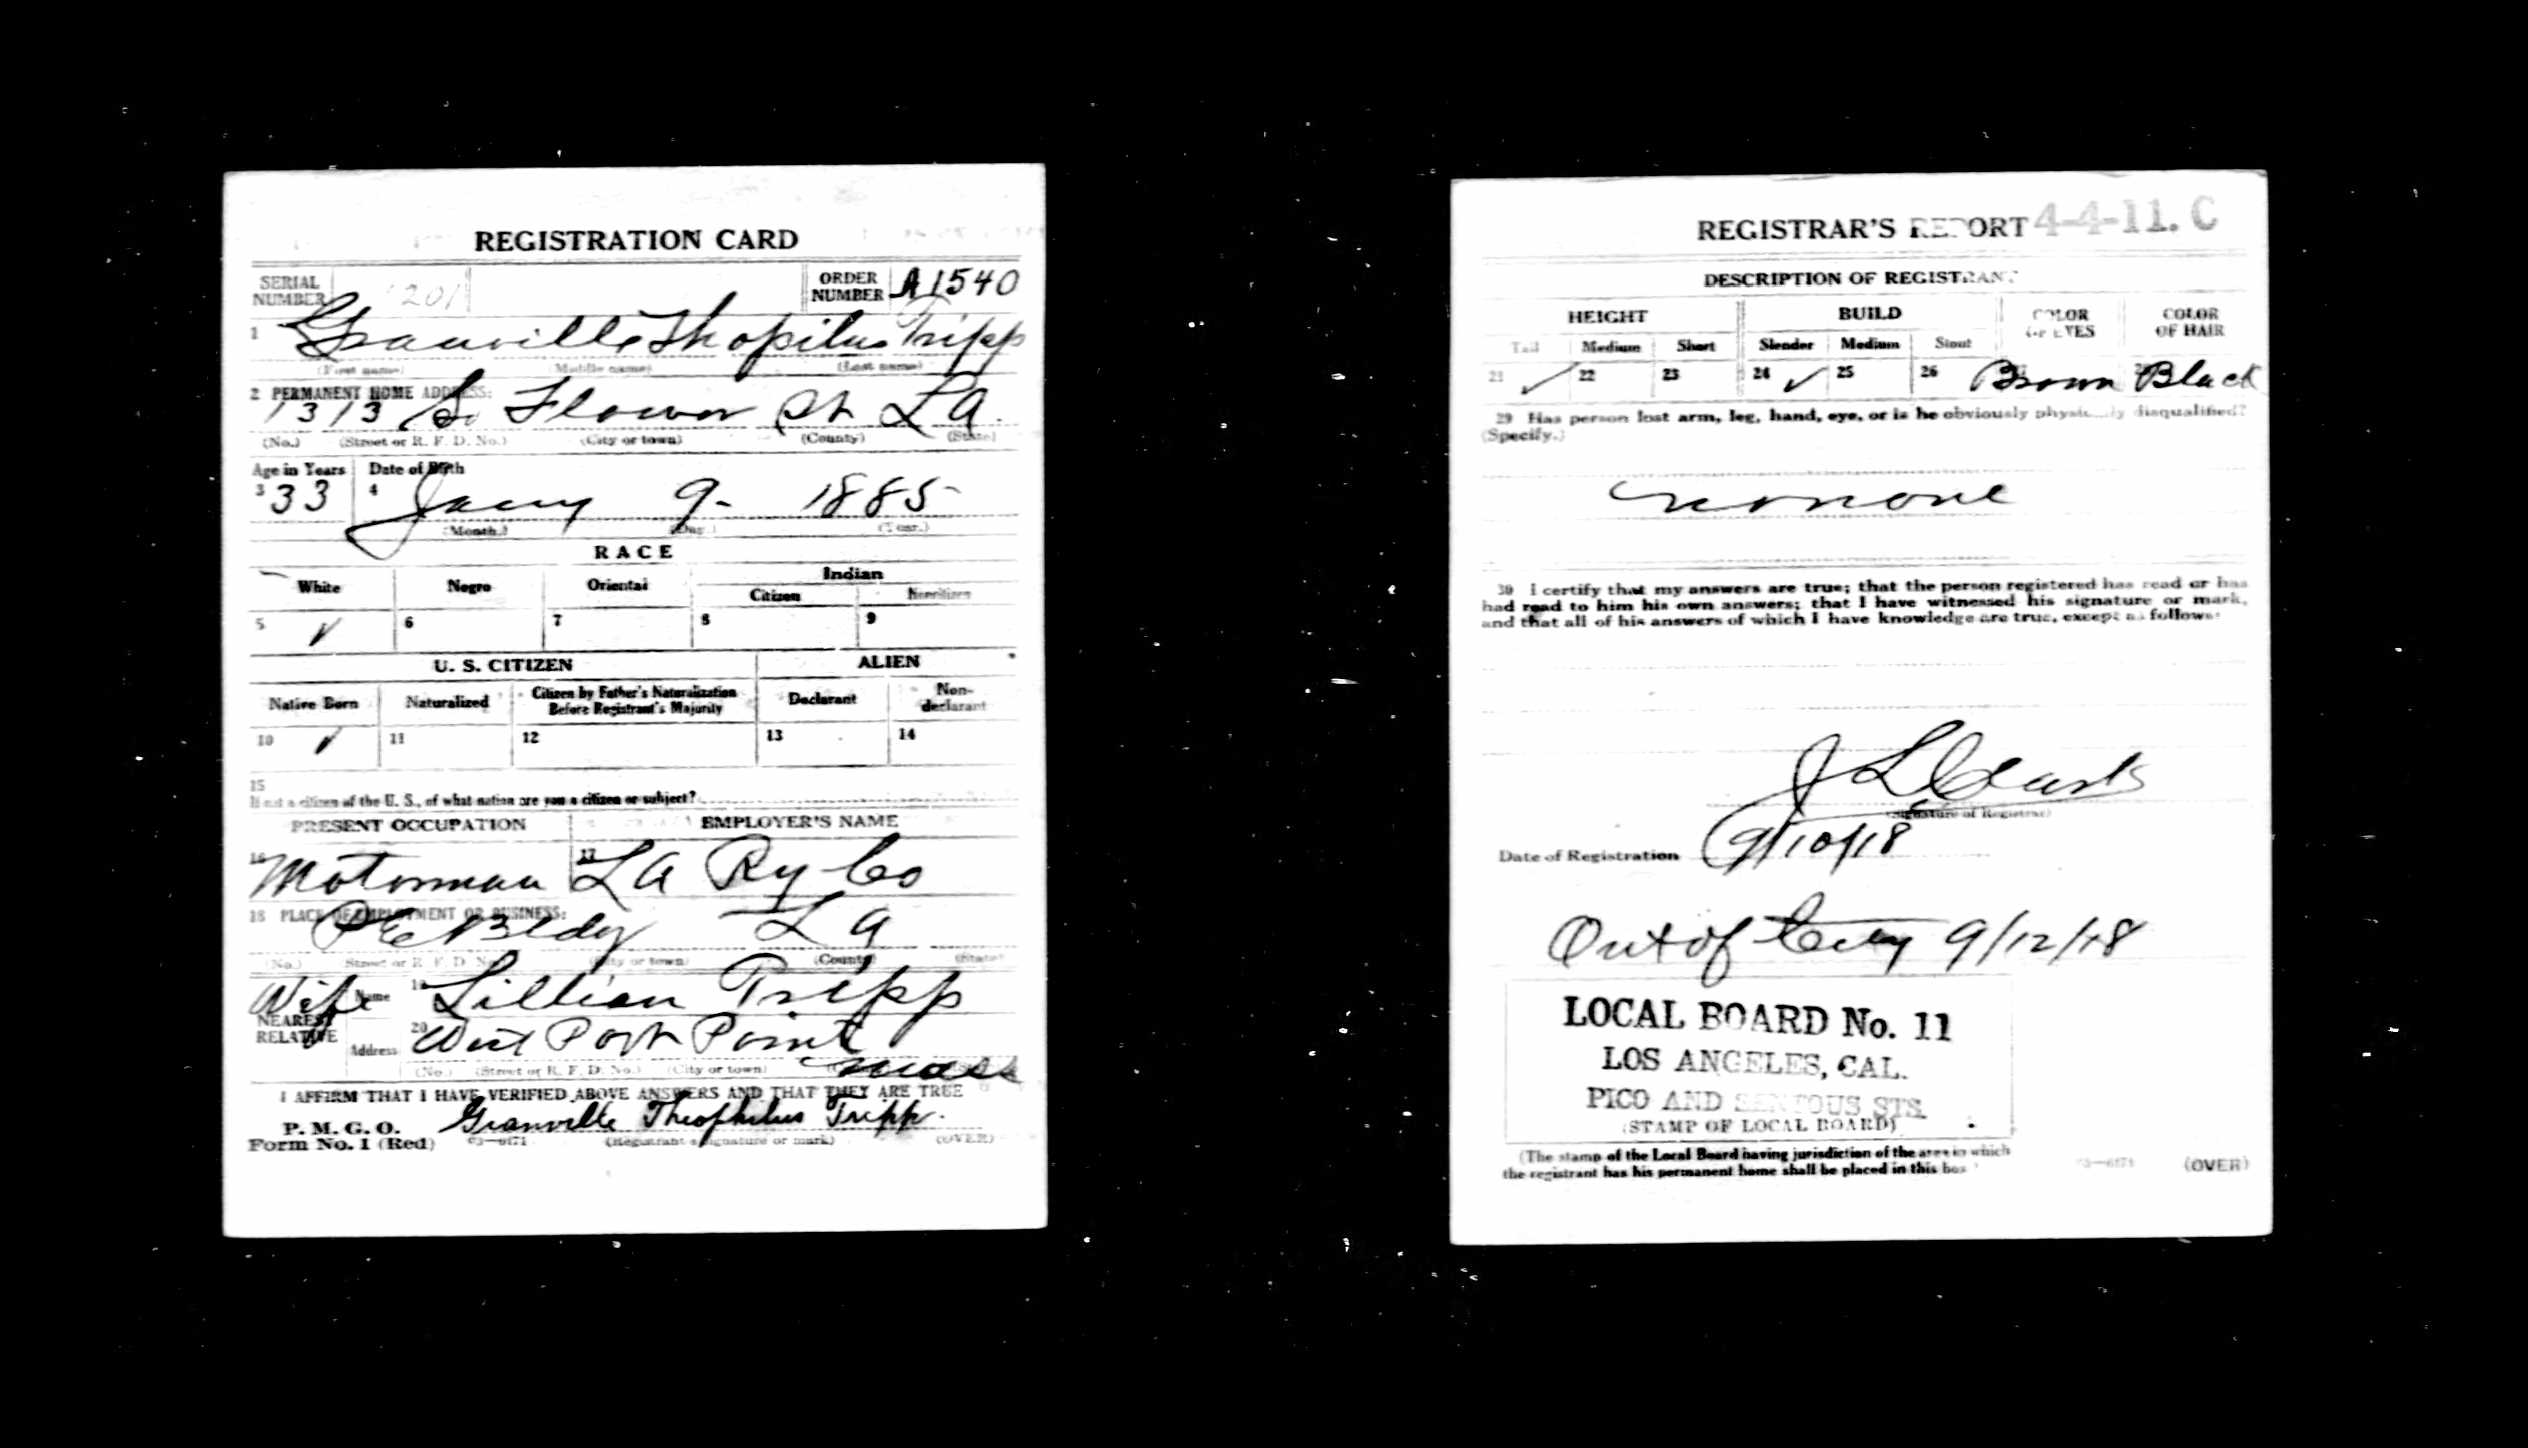 REGISTRATION CARD
SERIAL NUMBER 201 ORDER NUMBER A1540
1 Granville Thopilus Tripp
(First name) (Middle name) (Last name)
2 PERMANENT HOME ADDRESS:
1313 So Flower St LA.
(No.) (Street or R. F. D. No.) (City or town) (County) (State)
Age in Years Date of Birth
3 33 4 Jany 9- 1885
(Month.) (Day.) (Year.)
RACE
White Negro Oriental Indian
Citizen Noncitizen
5 ✓ 6 7 8 9
U. S. CITIZEN ALIEN
Native Born Naturalized Citizen by Father's Naturalization Before Registrant's Majority Declarant Non-declarant
10 ✓ 11 12 13 14
15
If not a citizen of the U. S., of what nation are you a citizen or subject?
PRESENT OCCUPATION EMPLOYER'S NAME
16 Motorman 17 LA Ry Co
18 PLACE OF EMPLOYMENT OR BUSINESS:
PE Bldg LA
(No.) (Street or R. F. D. No.) (City or town) (County) (State)
Wife Name 19 Lillian Tripp
NEAREST RELATIVE Address 20 West Port Point
Mass
(No.) (Street or R. F. D. No.) (City or town)
I AFFIRM THAT I HAVE VERIFIED ABOVE ANSWERS AND THAT THEY ARE TRUE
P. M. G. O.
Granville Theophilus Tripp.
Form No. 1 (Red) 03—6171 (Registrant's signature or mark) (OVER)
REGISTRAR'S REPORT 4-4-11. C
DESCRIPTION OF REGISTRANT
HEIGHT BUILD COLOR OF EYES COLOR OF HAIR
Tall Medium Short Slender Medium Stout
21 ✓ 22 23 24 ✓ 25 26 Brown Black
29 Has person lost arm, leg, hand, eye, or is he obviously physically disqualified?
(Specify.)
none
30 I certify that my answers are true; that the person registered has read or has
had read to him his own answers; that I have witnessed his signature or mark,
and that all of his answers of which I have knowledge are true, except as follows:
J L
(Signature of Registrar)
Date of Registration 9/10/18
Out of City 9/12/18
LOCAL BOARD No. 11
LOS ANGELES, CAL.
PICO AND SENTOUS STS.
(STAMP OF LOCAL BOARD)
(The stamp of the Local Board having jurisdiction of the area in which
the registrant has his permanent home shall be placed in this box.)
03—6171 (OVER)